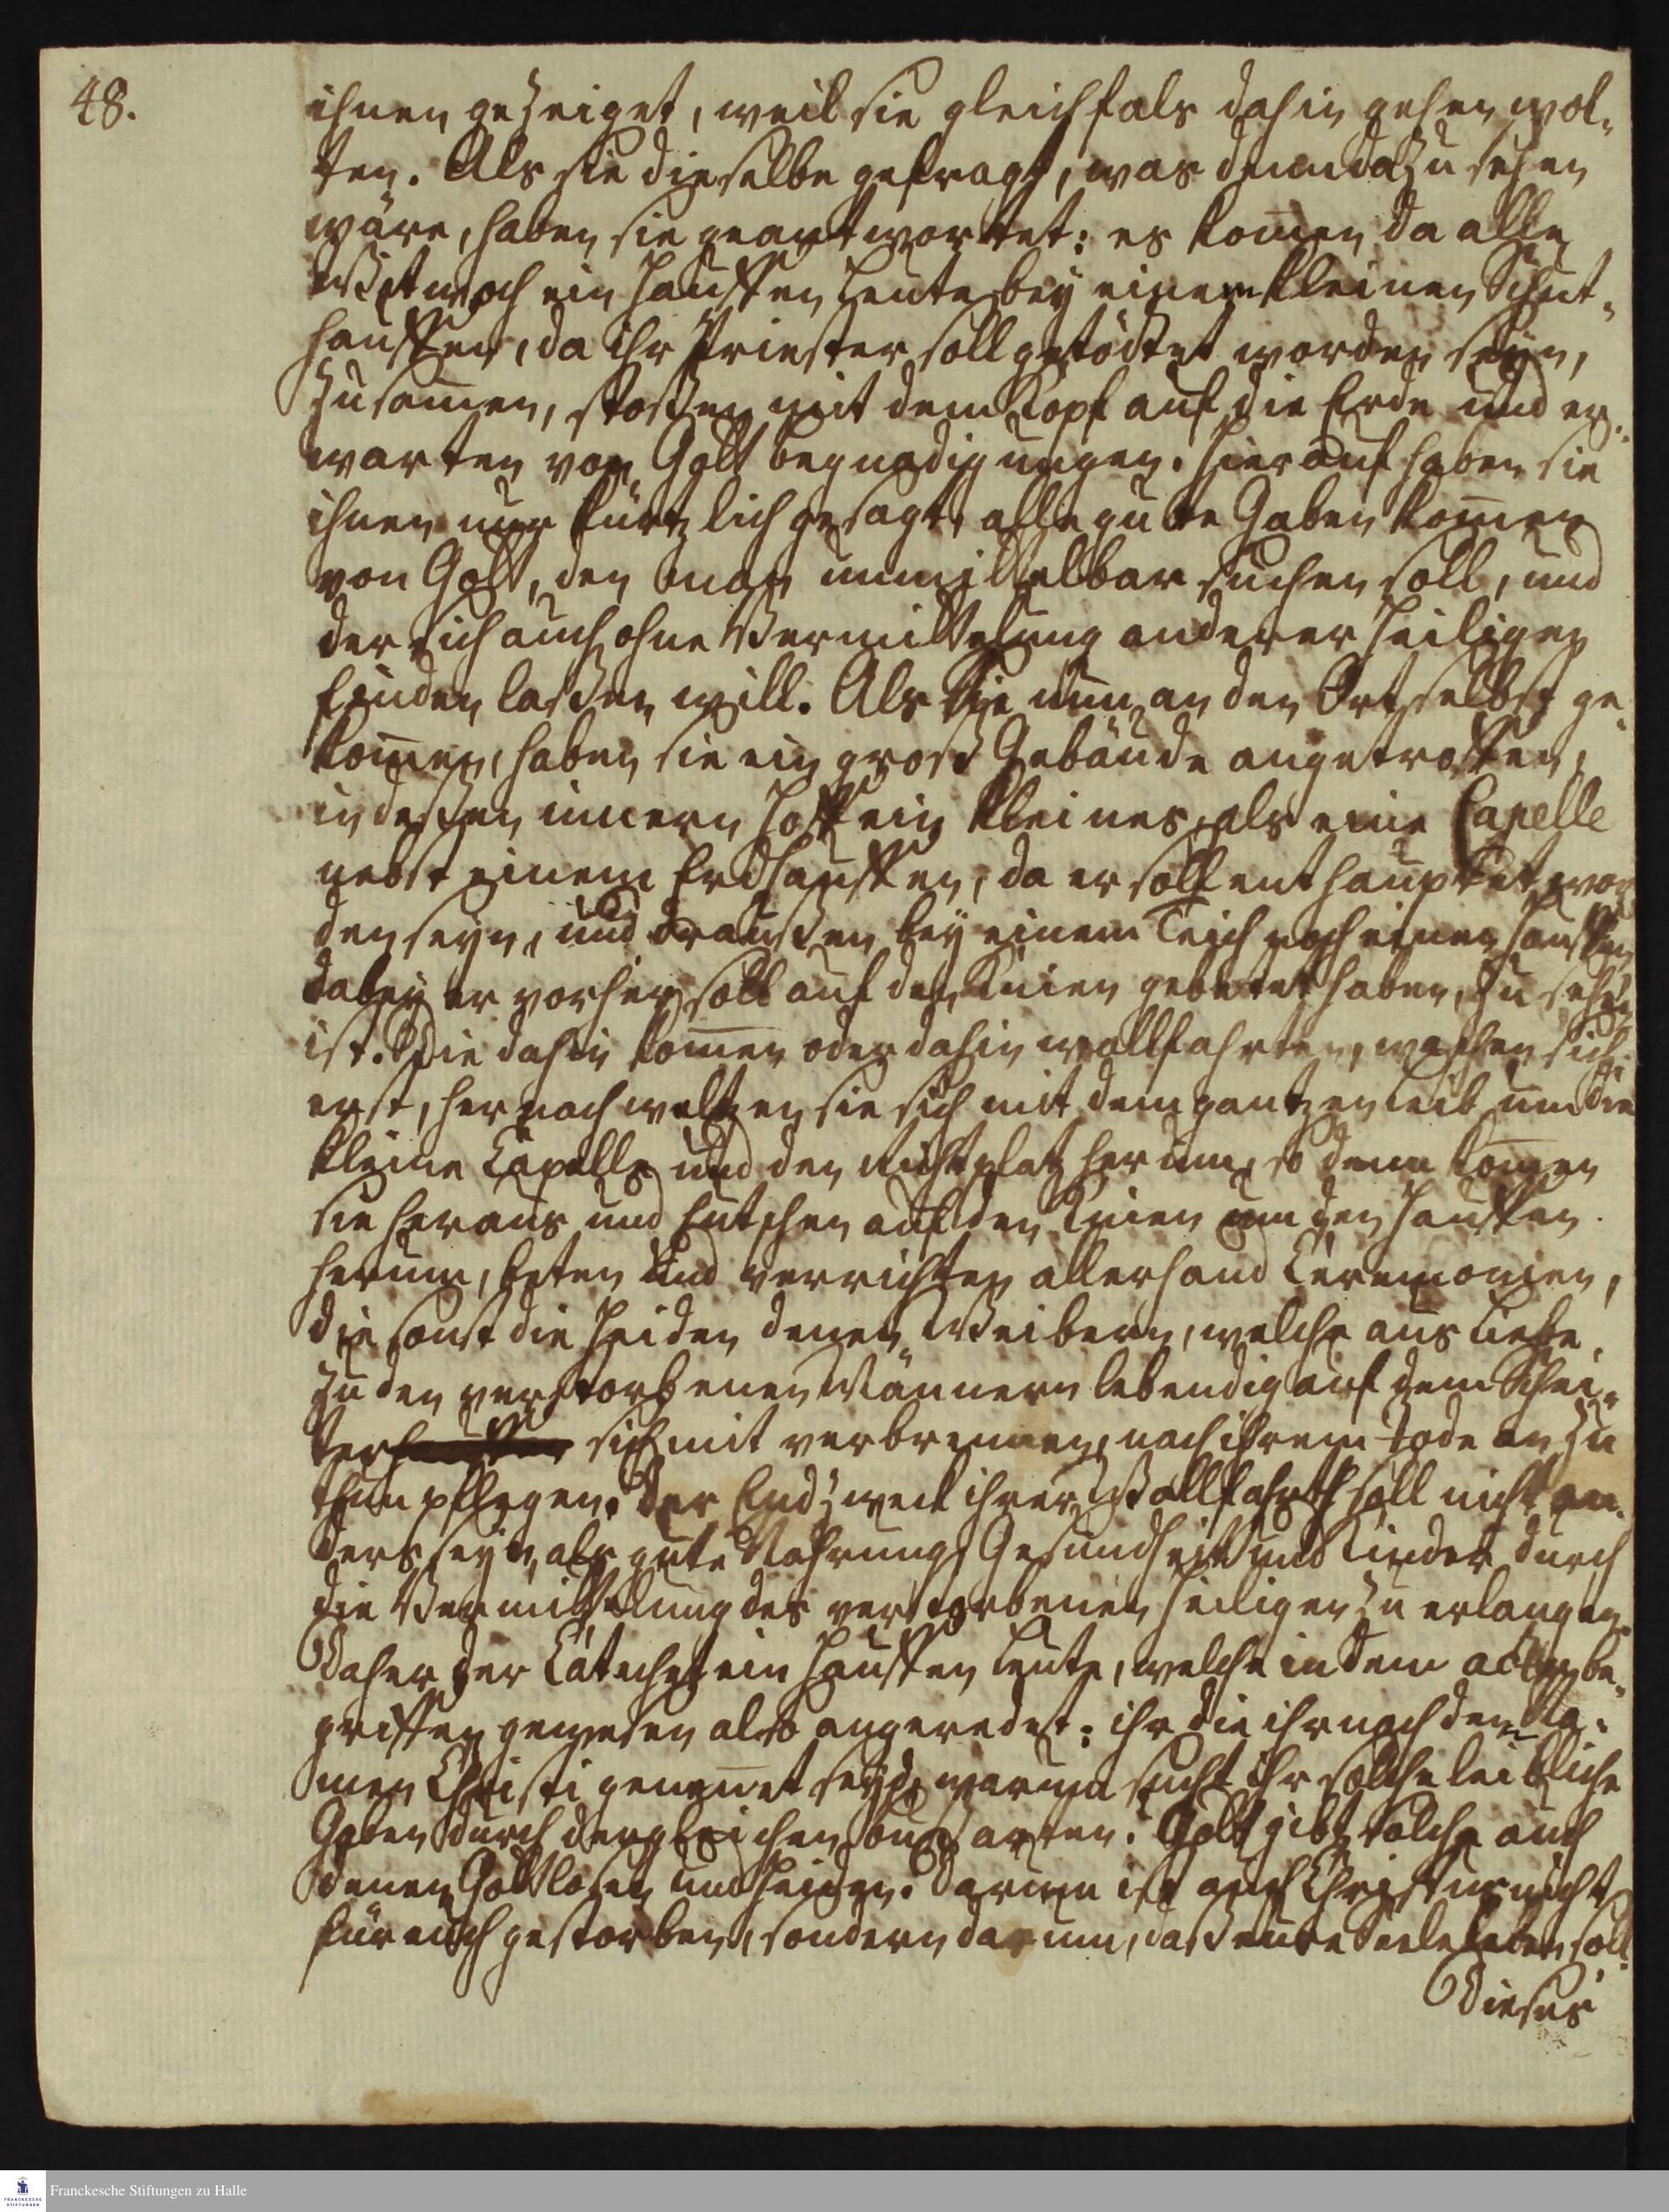 48.
ihnen gezeiget, weil sie gleichfals dahin gehen wol-
ten. Als sie dieselbe gefragt, was denn da zu sehen
wäre, haben sie geantwortet: es kom̄en da alle
Mitwoch ein Hauffen Leute bey einem kleinen Schut-
hauffen, da ihr Priester soll getödtet worden seyn,
zusam̄en, stoßen mit dem Kopf auf die Erde und er-
warten von Gott begnadigungen. Hierauf haben sie
ihnen nur kürtzlich gesagt, alle gute Gaben kom̄en
von Gott, den man unmittelbar suchen soll, und
der sich auch ohne Vermittelung anderer Heiligen
finden laßen will. Als sie nun an den Ort selbst ge-
kom̄en, haben sie ein groß Gebäude angetroffen,
in deßen innern Hoff ein kleines, als eine Capelle
nebst einem Erdhauffen, da er soll enthauptet wor
den seyn, und draußen bey einem Teich noch einen Hauffen
dabey er vorher soll auf den Knien gebetet haben, zu sehen
ist. Die dahin kom̄en oder dahin wallfahrten, waschen sich
erst, hernach weltzen sie sich mit dem gantzen Leib um die
kleine Capelle und den Richtplatz herum, so denn kom̄en
sie heraus und hutschen auf den Knien um den Hauffen
herum, beten und verrichten allerhand Ceremonien,
die sonst die Heiden denen Weibern, welche aus Liebe
zu den verstorbenen Männern lebendig auf dem Schei-
ter sich mit verbrennen, nach ihrem Tode an zu
thun pflegen. Der Endzweck ihrer Wallfahrth soll nicht an-
ders seyn, als gute Nahrung, Gesundheit und Kinder durch
die Vermittelung des verstorbenen Heiligen zu erlangen.
Daher der Catechet ein Hauffen Leute, welche in dem actu be-
griffen gewesen also angeredet: ihr die ihr nach dem Na-
men Christi genen̄et seyd, warum sucht ihr solche leibliche
Gaben durch dergleichen bußarten. Gott gibt solche auch
denen Gottlosen und Heiden. Darum ist auch Christus nicht
für euch gestorben, sondern darum, daß eure Seele leben soll.
Dieses
Franckesche Stiftungen zu Halle